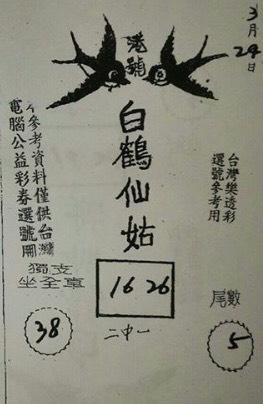 3月24日
港號
白鶴仙姑
台灣樂透彩
選號參考用
今參考資料僅供台灣
電腦公益彩券選號用
獨支
坐全車
38
16 26
二中一
尾數
5